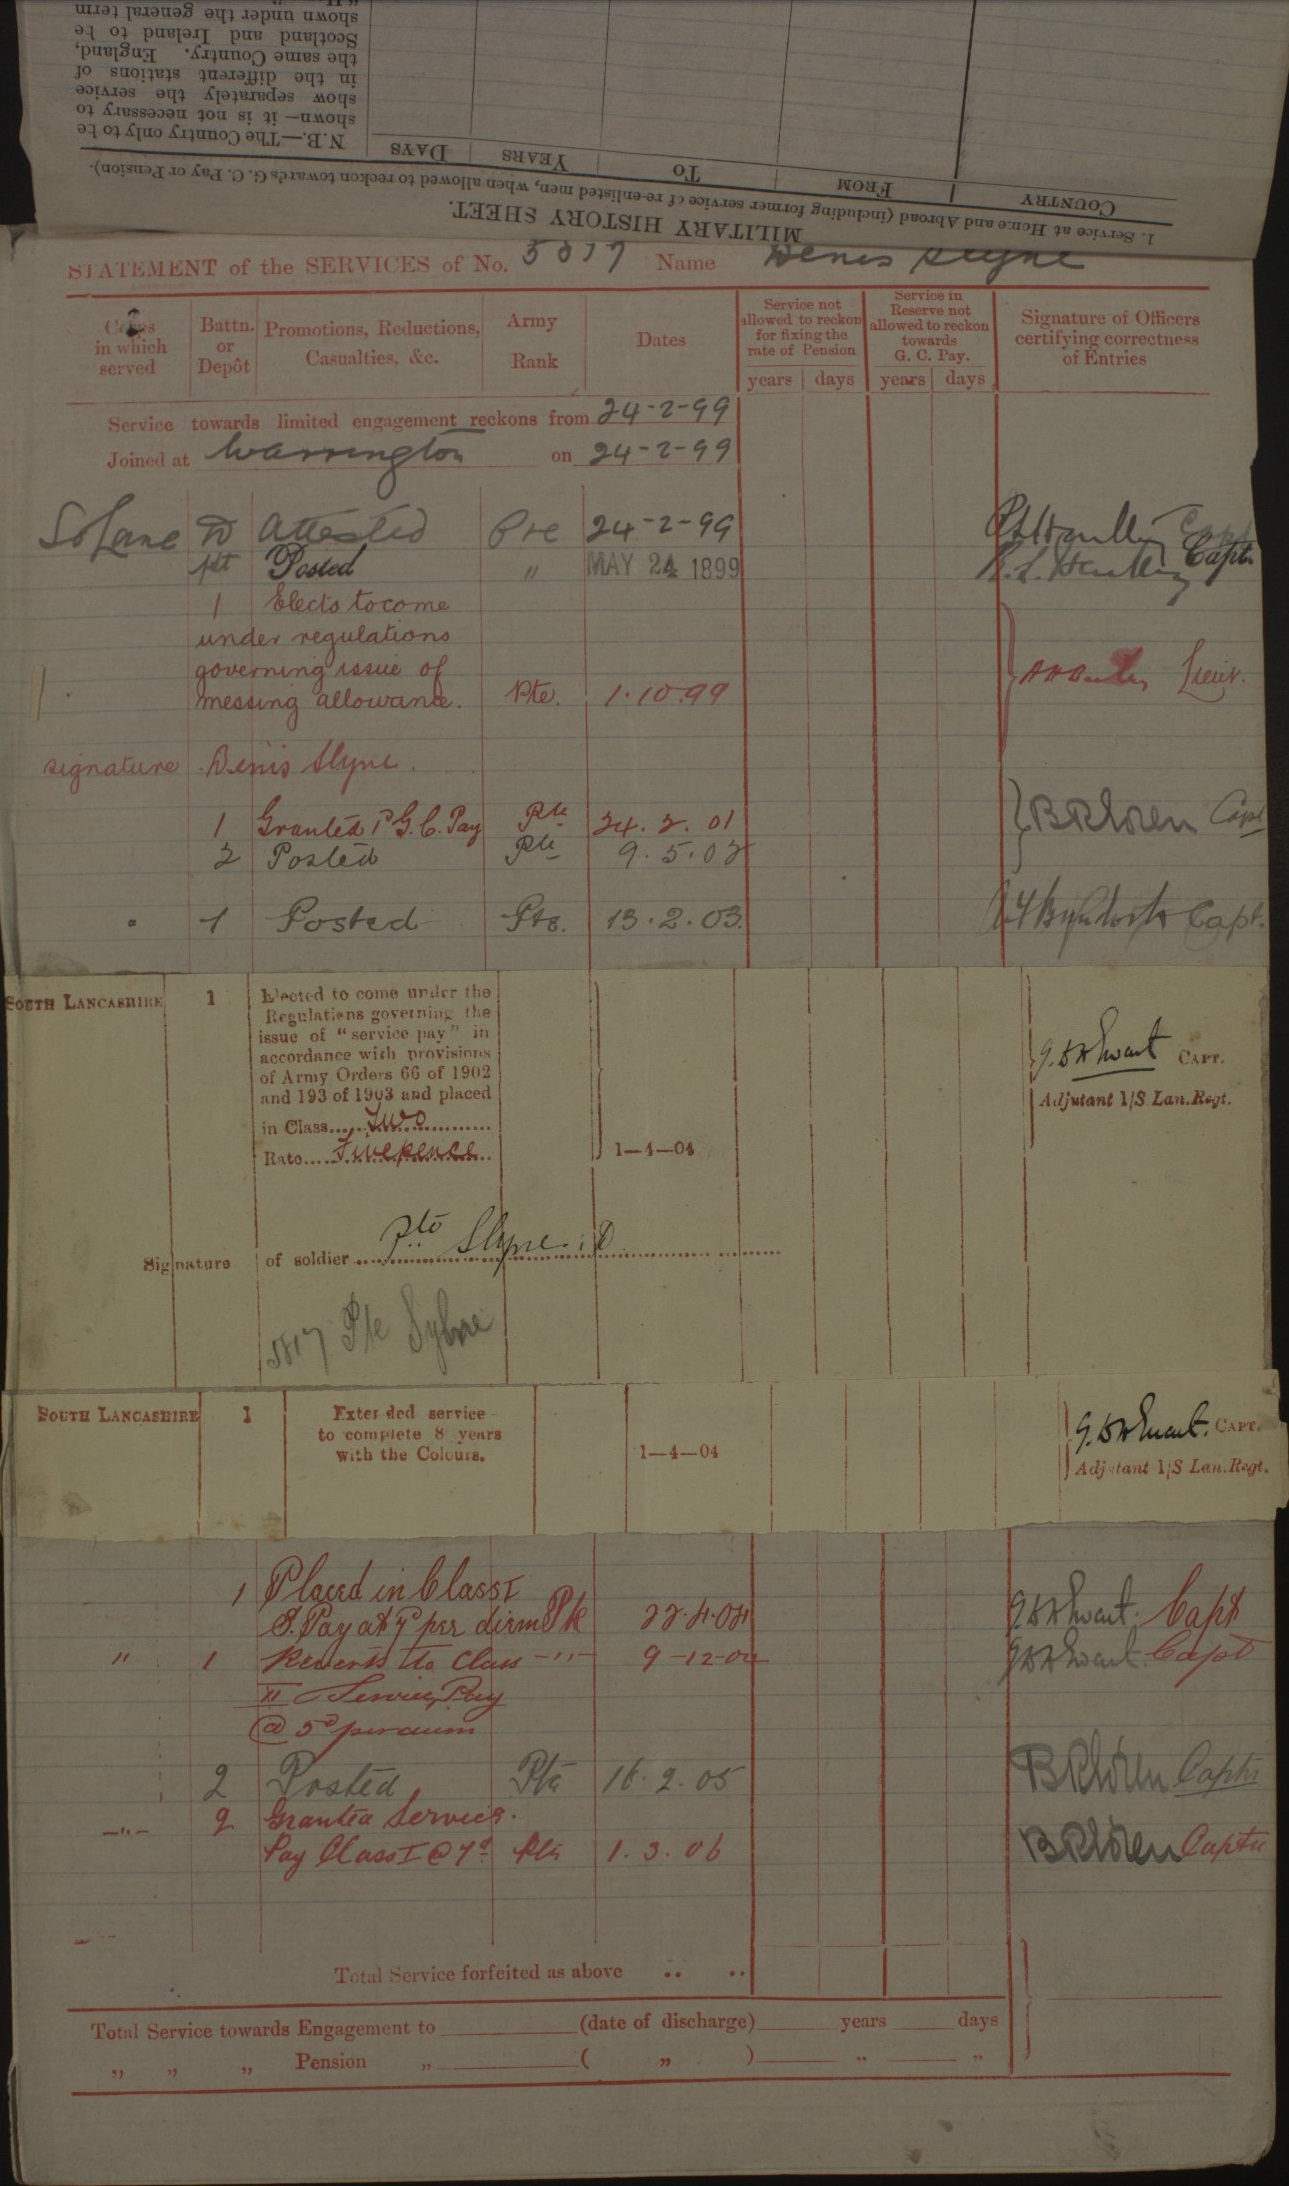 1. Service at Home and Abroad (including former service of re-enlisted men, when allowed to reckon towards G. C. Pay or Pension).
MILITARY HISTORY SHEET.
COUNTRY FROM TO YEARS DAYS
N.B.—The Country only to be
shown—it is not necessary to
show separately the service
in the different stations of
the same Country. England,
Scotland and Ireland to be
shown under the general term
STATEMENT of the SERVICES of No. 5817 Name Denis Slyne
Corps in which served
Battn. or Depôt
Promotions, Reductions, Casualties, &c.
Army Rank
Dates
Service not allowed to reckon for fixing the rate of Pension
years days
Service in Reserve not allowed to reckon towards G. C. Pay.
years days
Signature of Officers certifying correctness of Entries
Service towards limited engagement reckons from 24-2-99
Joined at Warrington on 24-2-99
So Lanc D Attested Pte 24-2-99 Capt
Posted " MAY 24 1899 Capt.
1 Elects to come
under regulations
governing issue of
messing allowance. Pte. 1.10.99 Lieut.
signature Denis Slyne.
1 Granted 1d G.C. Pay Pte 24.2.01 Capt
2 Posted Pte 9.5.02
1 Posted Pte. 13.2.03. Capt.
SOUTH LANCASHIRE 1 Elected to come under the
Regulations governing the
issue of "service pay" in
accordance with provisions
of Army Orders 66 of 1902
and 193 of 1903 and placed
in Class Two
Rate Fivepence 1—4—04
CAPT.
Adjutant 1/S Lan. Regt.
Signature of soldier Pte Slyne. D
5817 Pte Sylne
SOUTH LANCASHIRE 1 Extended service
to complete 8 years
with the Colours. 1—4—04
CAPT.
Adjutant 1/S Lan. Regt.
1 Placed in Class I
S. Pay at 7d per diem Pte 22.4.04 Capt
" 1 Reverts to Class -"- 9-12-04 Capt
II Service Pay
@ 5d per diem
2 Posted Pte 16.2.05 Captn
-"- 2 Granted Service
Pay Class I @ 7d Pte 1.3.06 Captn
Total Service forfeited as above .. ..
Total Service towards Engagement to (date of discharge) years days
„ „ „ Pension „ ( „ ) „ „